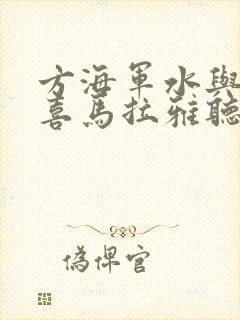 方海軍水與
喜馬拉雅聽
偽俾官